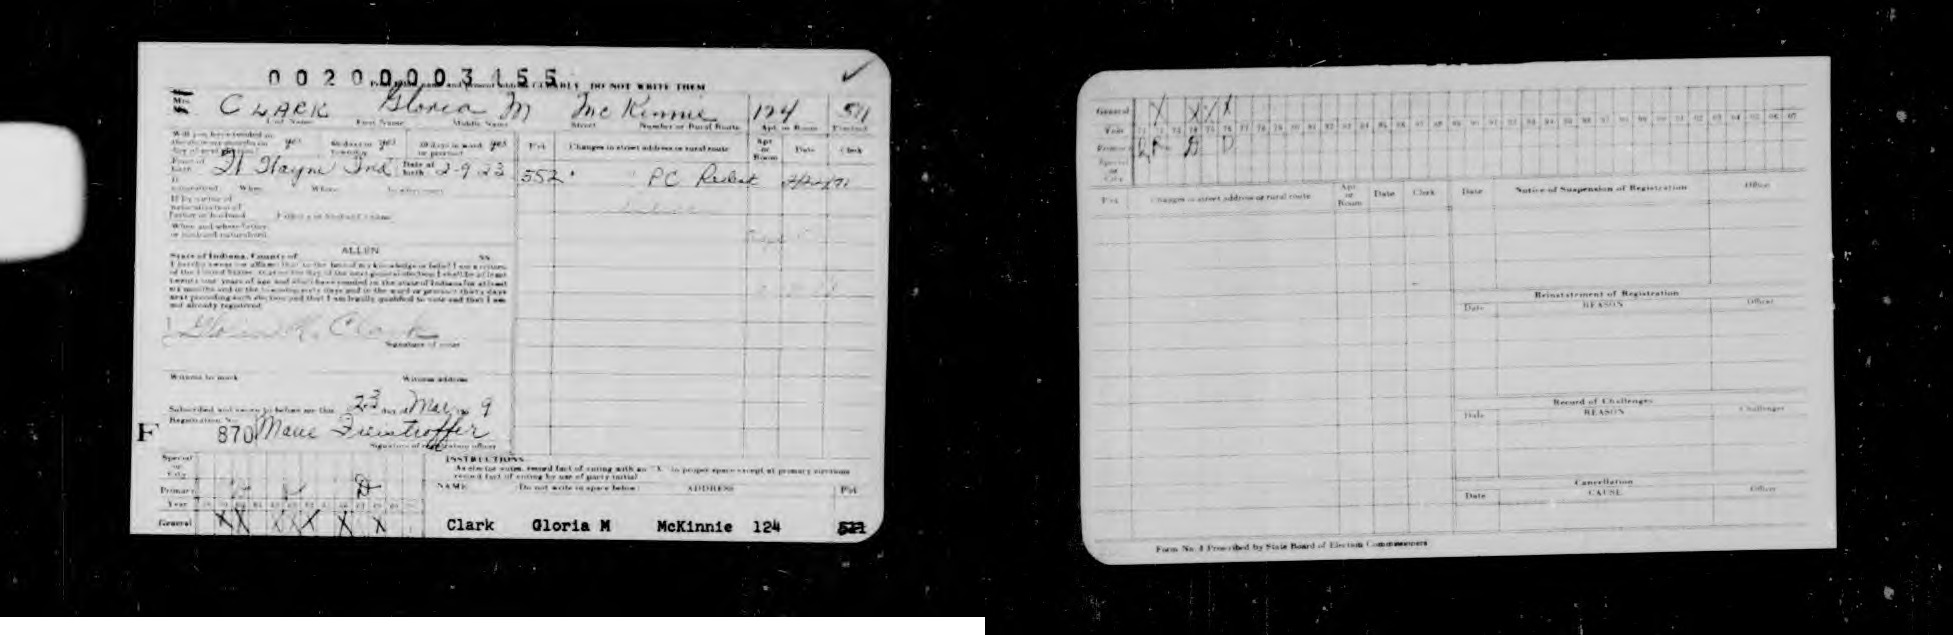 0 0 2 0 0 0 0 3 1 5 5
DO NOT WRITE THEM
Mrs. CLARK Gloria M McKinnie 124 511
Last Name First Name Middle Name Street Number or Rural Route Apt. or Room Precinct
yes yes yes
Pct. Changes in street address or rural route Apt. or Room Date Clerk
Ft Wayne Ind Date of birth 2-9-23
552 PC Redist
If by virtue of
naturalization of
Father or husband
When and where father
or husband naturalized
ALLEN
State of Indiana, County of SS
I hereby swear (or affirm) that to the best of my knowledge or belief I am a citizen
of the United States, that on the day of the next general election I shall be at least
twenty-one years of age and shall have resided in the state of Indiana for at least
six months and in the township sixty days and in the ward or precinct thirty days
next preceding such election and that I am legally qualified to vote and that I am
not already registered.
Clark
Signature of voter
Witness to mark Witness address
Subscribed and sworn to before me this 23 day of Mar 9
Registration No.
F 870 Marie
Signature of registration officer
Special or City
Primary
Year
General
INSTRUCTIONS
As elector votes, record fact of voting with an "X" in proper space except at primary elections
record fact of voting by use of party initial
NAME (Do not write in space below) ADDRESS Pct
Clark Gloria M McKinnie 124 521
General X X X X
Year 71 72 73 74 75 76 77 78 79 80 81 82 83 84 85 86 87 88 89 90 91 92 93 94 95 96 97
Primary D D
Special or City
Pct. Changes in street address or rural route Apt. or Room Date Clerk
Date Notice of Suspension of Registration Officer
Reinstatement of Registration
Date REASON Officer
Record of Challenges
Date REASON Challenger
Cancellation
Date CAUSE Officer
Form No. 4 Prescribed by State Board of Election Commissioners